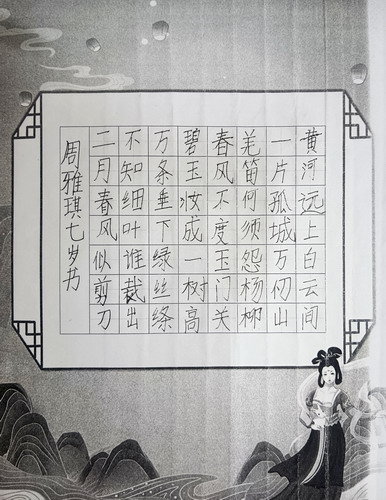 黄河远上白云间
一片孤城万仞山
羌笛何须怨杨柳
春风不度玉门关
碧玉妆成一树高
万条垂下绿丝绦
不知细叶谁裁出
二月春风似剪刀
周雅琪七岁书